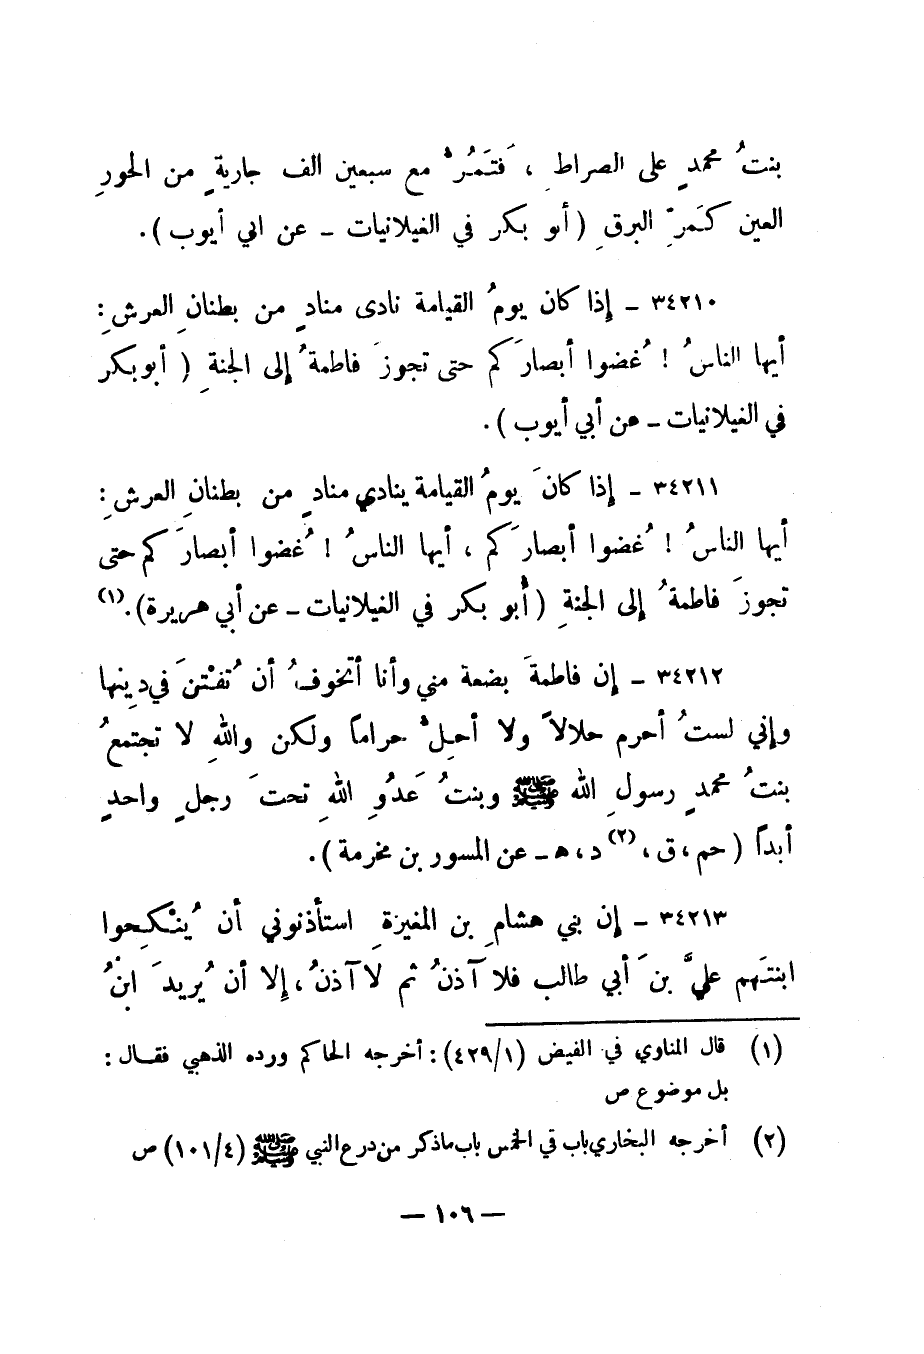 بنتُ محمدٍ على الصراطِ ، فَتَمُرُّ مع سبعين الف جاريةٍ من الحورِ
العين كَمَرِّ البرقِ ( أبو بكر في الغيلانيات ـ عن ابي أيوب ) .
٣٤٢١٠ ـ إذا كان يومُ القيامة نادى منادٍ من بطنانِ العرشِ :
أيها الناسُ ! غُضوا أبصارَكم حتى تجوزَ فاطمةُ إلى الجنةِ ( أبو بكر
في الغيلانيات ـ عن أبي أيوب ) .
٣٤٢١١ ـ إذا كانَ يومُ القيامة ينادي منادٍ من بطنانِ العرشِ :
أيها الناسُ ! غُضوا أبصارَكم ، أيها الناسُ ! غُضوا أبصارَكم حتى
تجوزَ فاطمةُ إلى الجنةِ ( أبو بكر في الغيلانيات ـ عن أبي هريرة ) .(١)
٣٤٢١٢ ـ إن فاطمةَ بضعة مني وأنا أتخوفُ أن تُفتْنَ في دِينها
وإني لستُ أحرم حلالاً ولا أحِلُّ حراماً ولكن واللهِ لا تجتمعُ
بنتُ محمدٍ رسولِ الله ﷺ وبنتُ عَدُوِّ اللهِ تحتَ رجلٍ واحدٍ
أبداً ( حم ، ق ، (٢) د ، ه ـ عن المسور بن مخرمة ) .
٣٤٢١٣ ـ إن بني هشامِ بن المغيرةِ استأذنوني أن يُنْكِحوا
ابنتَهم عليَّ بنَ أبي طالب فلا آذنُ ثم لا آذنُ ، إلا أن يُريدَ ابنُ
(١) قال المناوي في الفيض (١/٤٢٩) : أخرجه الحاكم ورده الذهبي فقال :
بل موضوع ص
(٢) أخرجه البخاري باب في الخمس باب ما ذكر من درع النبي ﷺ (٤/١٠١) ص
— ١٠٦ —